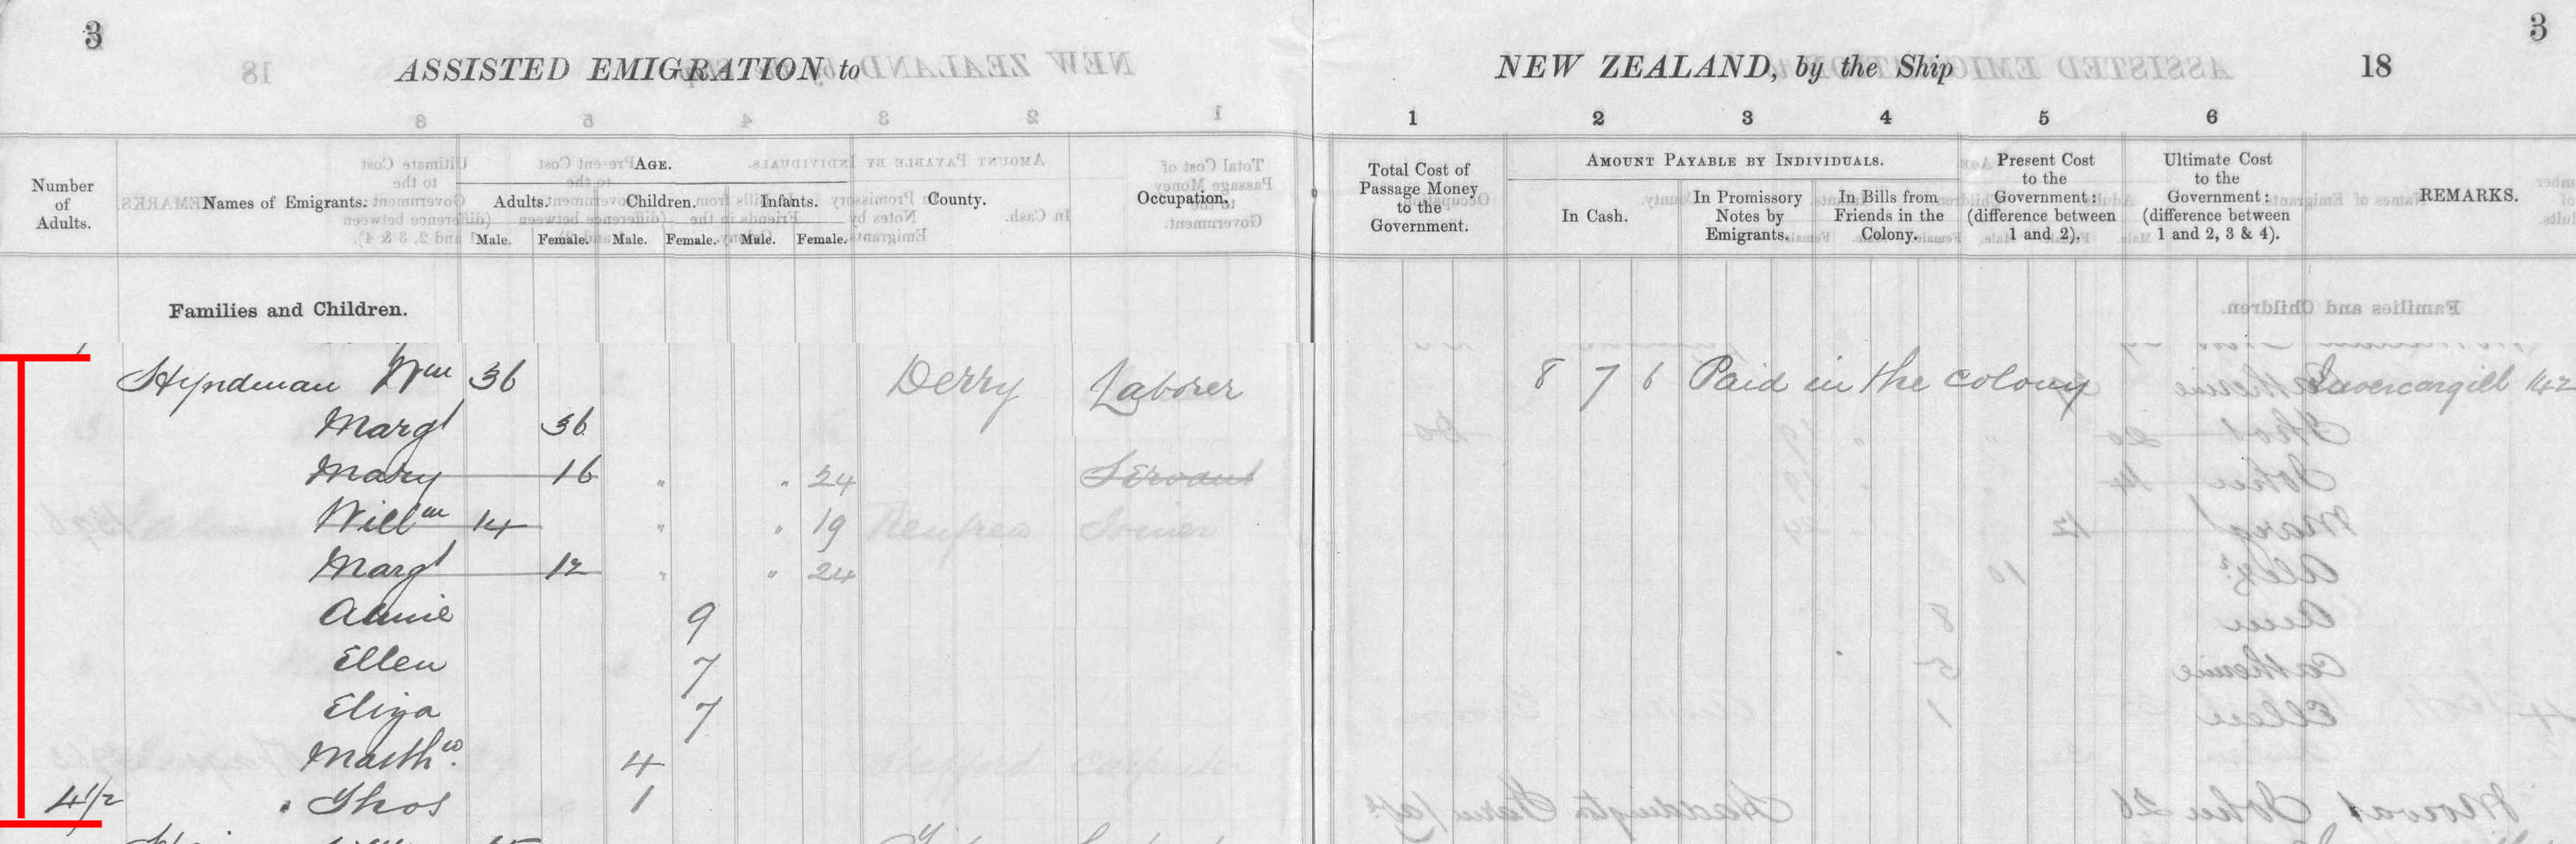 3
3
ASSISTED EMIGRATION to
NEW ZEALAND, by the Ship
18
1 2 3 4 5 6
Number of Adults.
Names of Emigrants.
AGE.
Adults. Children. Infants.
Male. Female. Male. Female. Male. Female.
County.
Occupation.
Total Cost of Passage Money to the Government.
AMOUNT PAYABLE BY INDIVIDUALS.
In Cash.
In Promissory Notes by Emigrants.
In Bills from Friends in the Colony.
Present Cost to the Government: (difference between 1 and 2).
Ultimate Cost to the Government: (difference between 1 and 2, 3 & 4).
REMARKS.
Families and Children.
Hyndman Wm 36 Derry Laborer 8 7 6 Paid in the colony Invercargill 142
Margt 36
Mary 16 " " 24 Servant
Willm 14 " " 19
Margt 12 " " 24
Annie 9
Ellen 7
Eliza 7
Matthw. 4
4 1/2 Thos 1